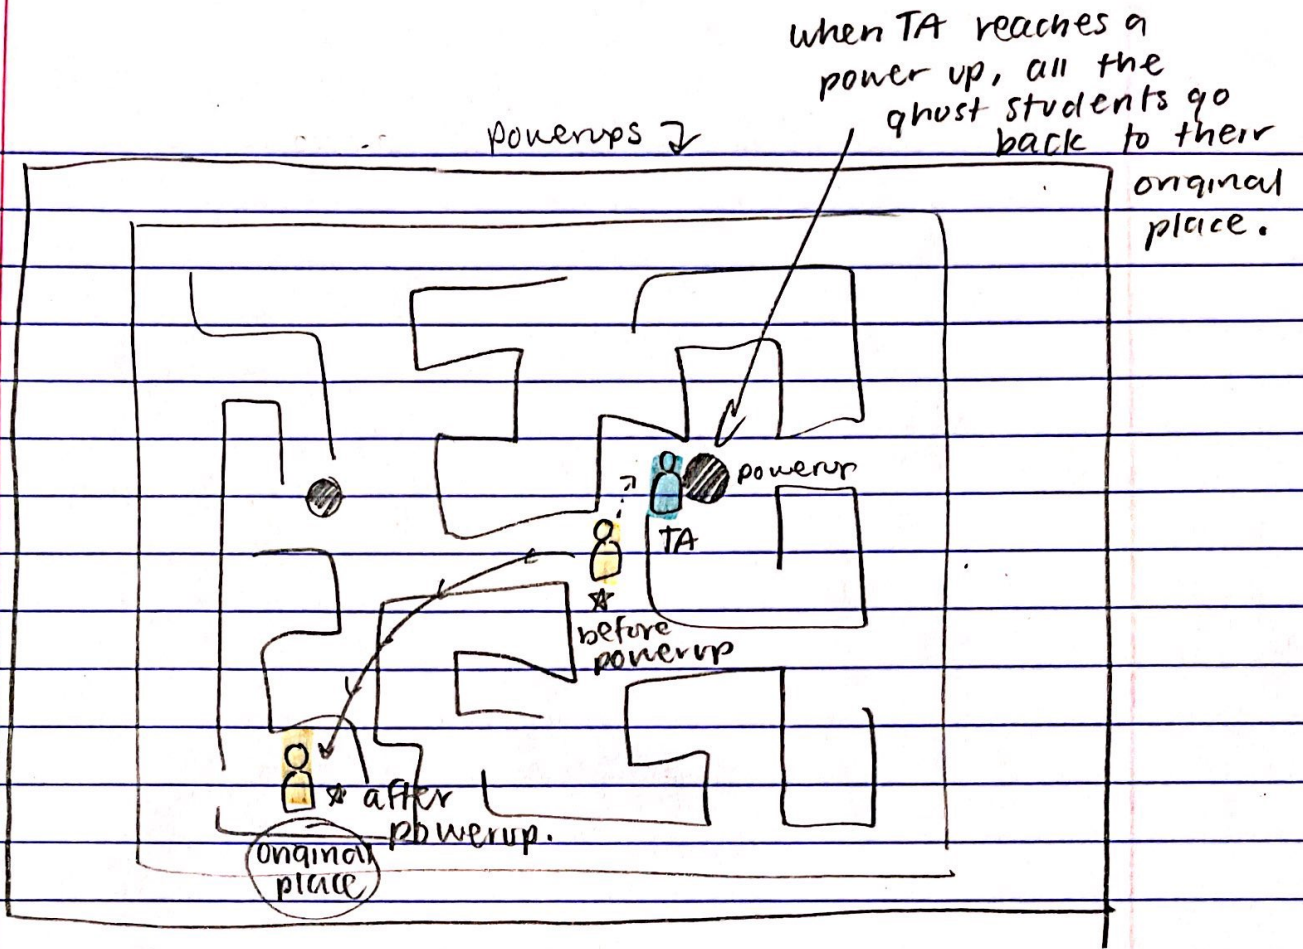 when TA reaches a
power up, all the
ghost students go
back to their
original
place.
powerups
powerup
TA
before
powerup
after
powerup.
original
place